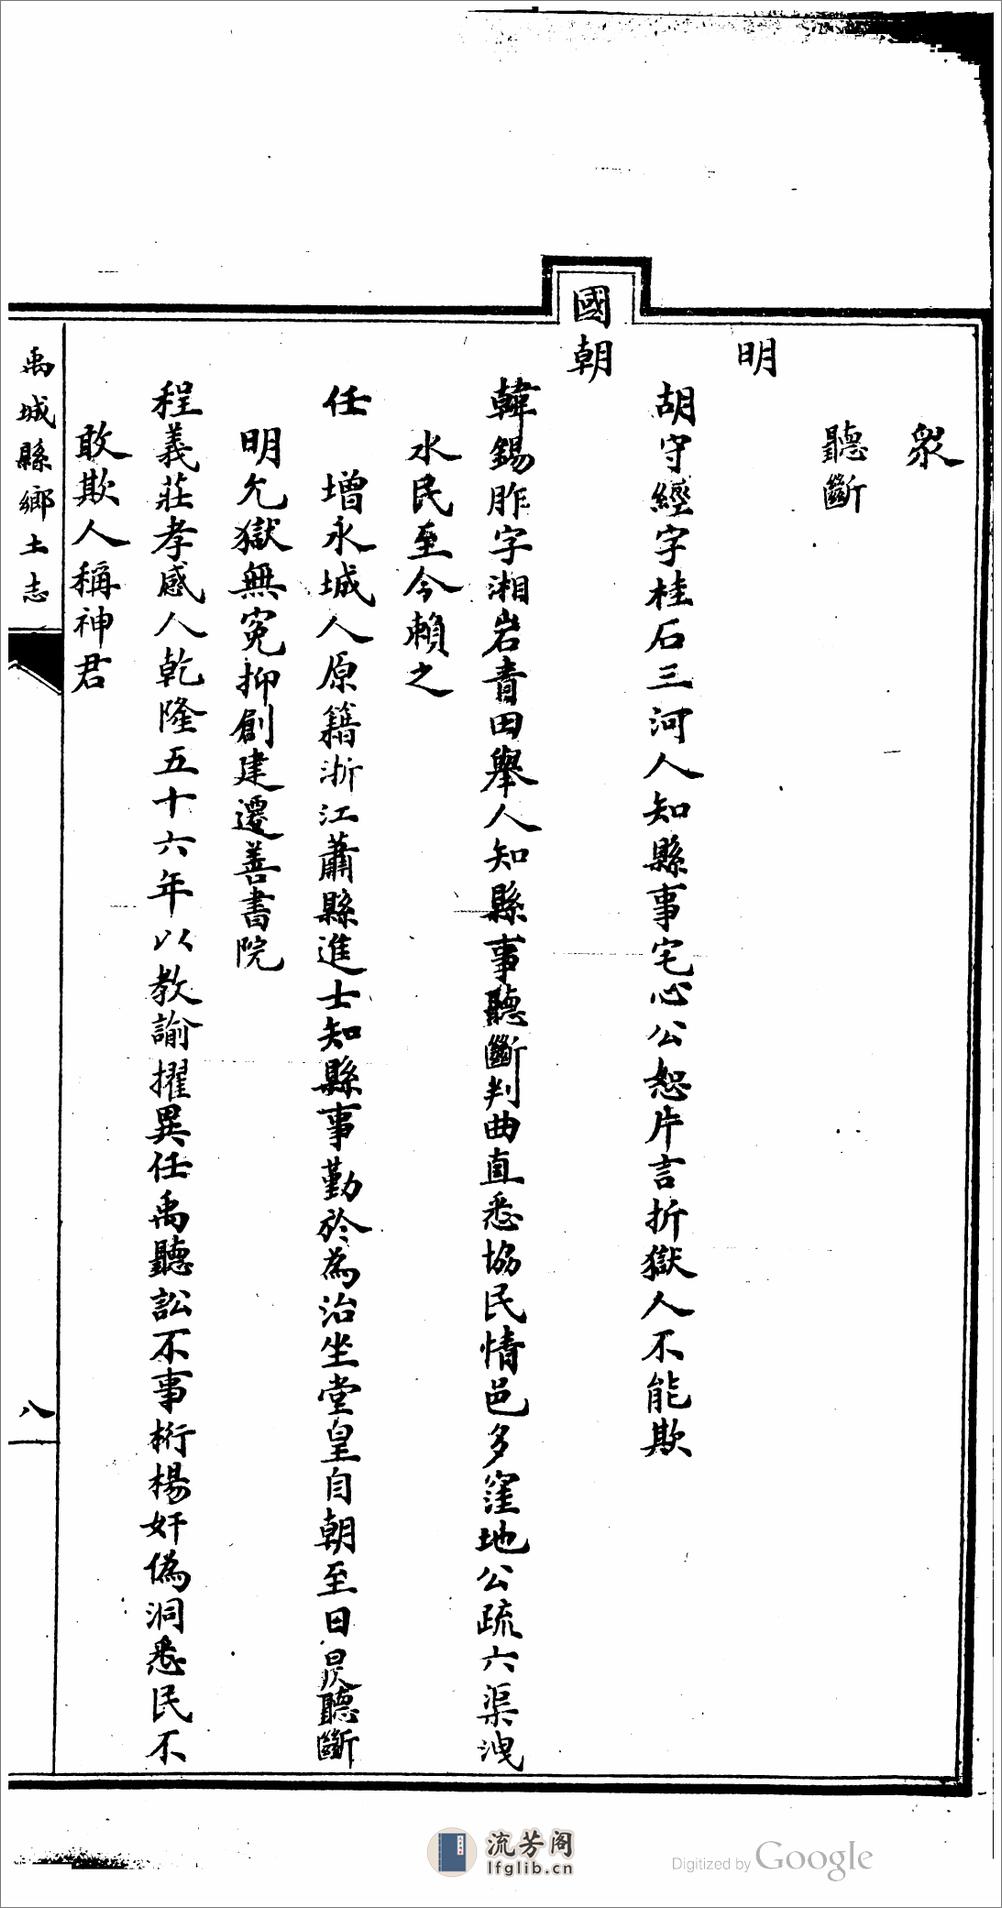 衆
聽斷
明
胡守經字桂石三河人知縣事宅心公恕片言折獄人不能欺
國朝
韓錫胙字湘岩青田舉人知縣事聽斷判曲直悉協民情邑多窪地公疏六渠洩
水民至今賴之
任　增永城人原籍浙江蕭縣進士知縣事勤於為治坐堂皇自朝至日昃聽斷
明允獄無冤抑創建遷善書院
程義莊孝感人乾隆五十六年以教諭擢異任禹聽訟不事桁楊奸偽洞悉民不
敢欺人稱神君
禹城縣鄉土志
八
流芳阁
lfglib.cn
Digitized by Google